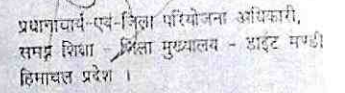 प्रधानाचार्य-एवं-जिला परियोजना अधिकारी,
समग्र शिक्षा - जिला मुख्यालय - डाईट मण्डी
हिमाचल प्रदेश ।